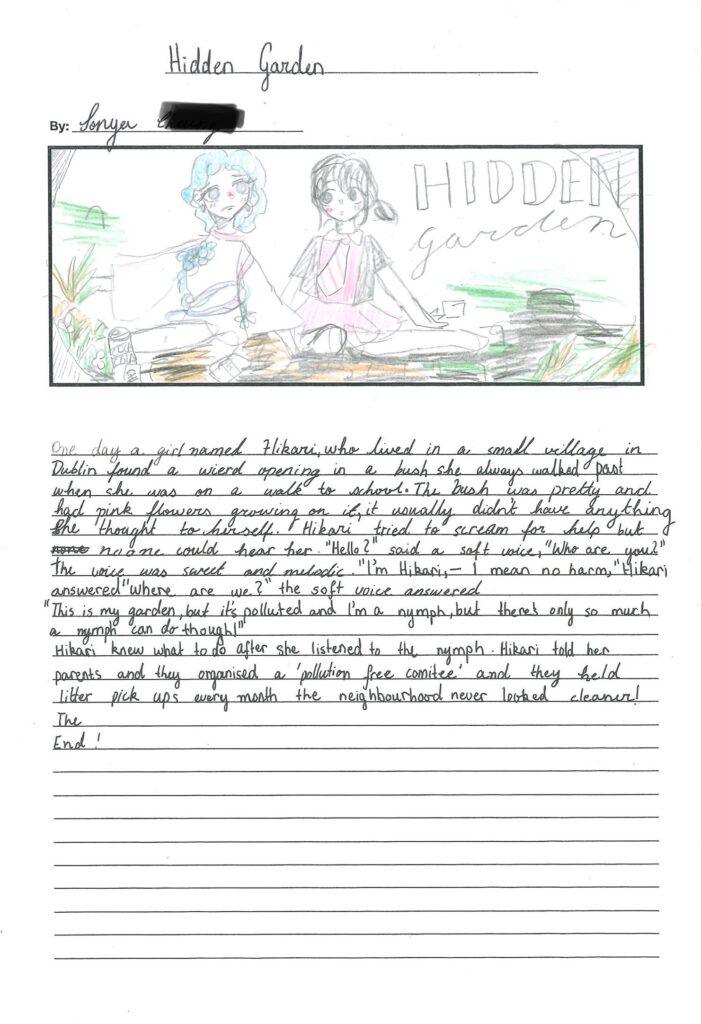 Hidden Garden
By: Sonya
HIDDEN
garden
One day a girl named Hikari, who lived in a small village in
Dublin found a wierd opening in a bush she always walked past
when she was on a walk to school. The bush was pretty and
had pink flowers growing on it, it usually didn't have anything
she thought to herself. Hikari tried to scream for help but
no one could hear her. "Hello?" said a soft voice, "Who are you?"
The voice was sweet and melodic. "I'm Hikari, – I mean no harm," Hikari
answered "where are we?" the soft voice answered
"This is my garden, but it's polluted and I'm a nymph, but there's only so much
a nymph can do though!"
Hikari knew what to do after she listened to the nymph. Hikari told her
parents and they organised a 'pollution free comitee' and they held
litter pick ups every month the neighbourhood never looked cleaner!
The
End!